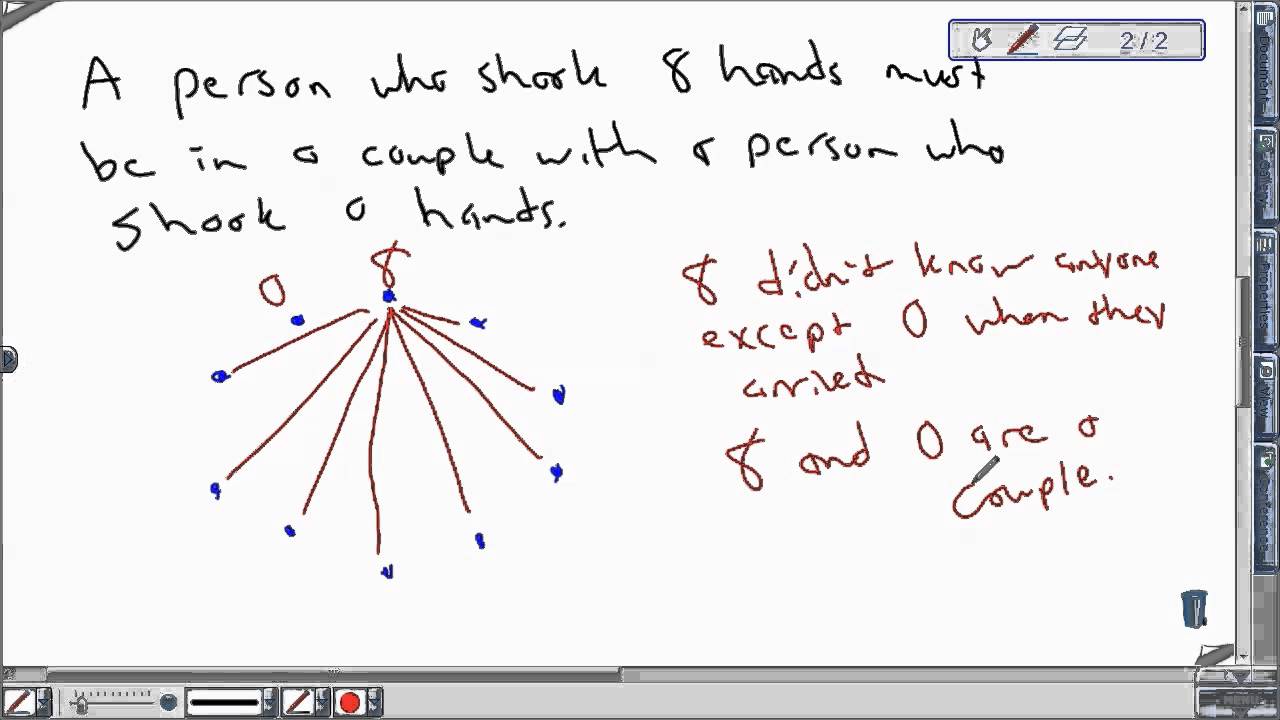 2/2
A person who shook 8 hands must
be in a couple with a person who
shook 0 hands.
0
8
8 didn't know anyone
except 0 when they
arrived
8 and 0 are a
couple.
Document
Gallery
Properties
View
Conference
MENU